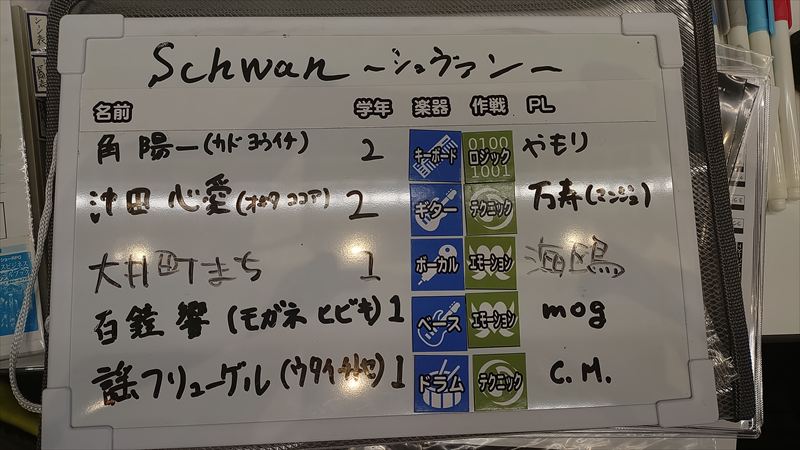 Schwan ～シュヴァン～
名前 学年 楽器 作戦 PL
角 陽一(カド ヨウイチ) 2 キーボード ロジック 0100 1001 やもり
沖田 心愛(オキタ ココア) 2 ギター テクニック 万寿(マンジュ)
大井町まち 1 ボーカル エモーション 海鴎
百鉦 響(モガネ ヒビキ) 1 ベース エモーション mog
謡フリューゲル 1 ドラム テクニック C.M.